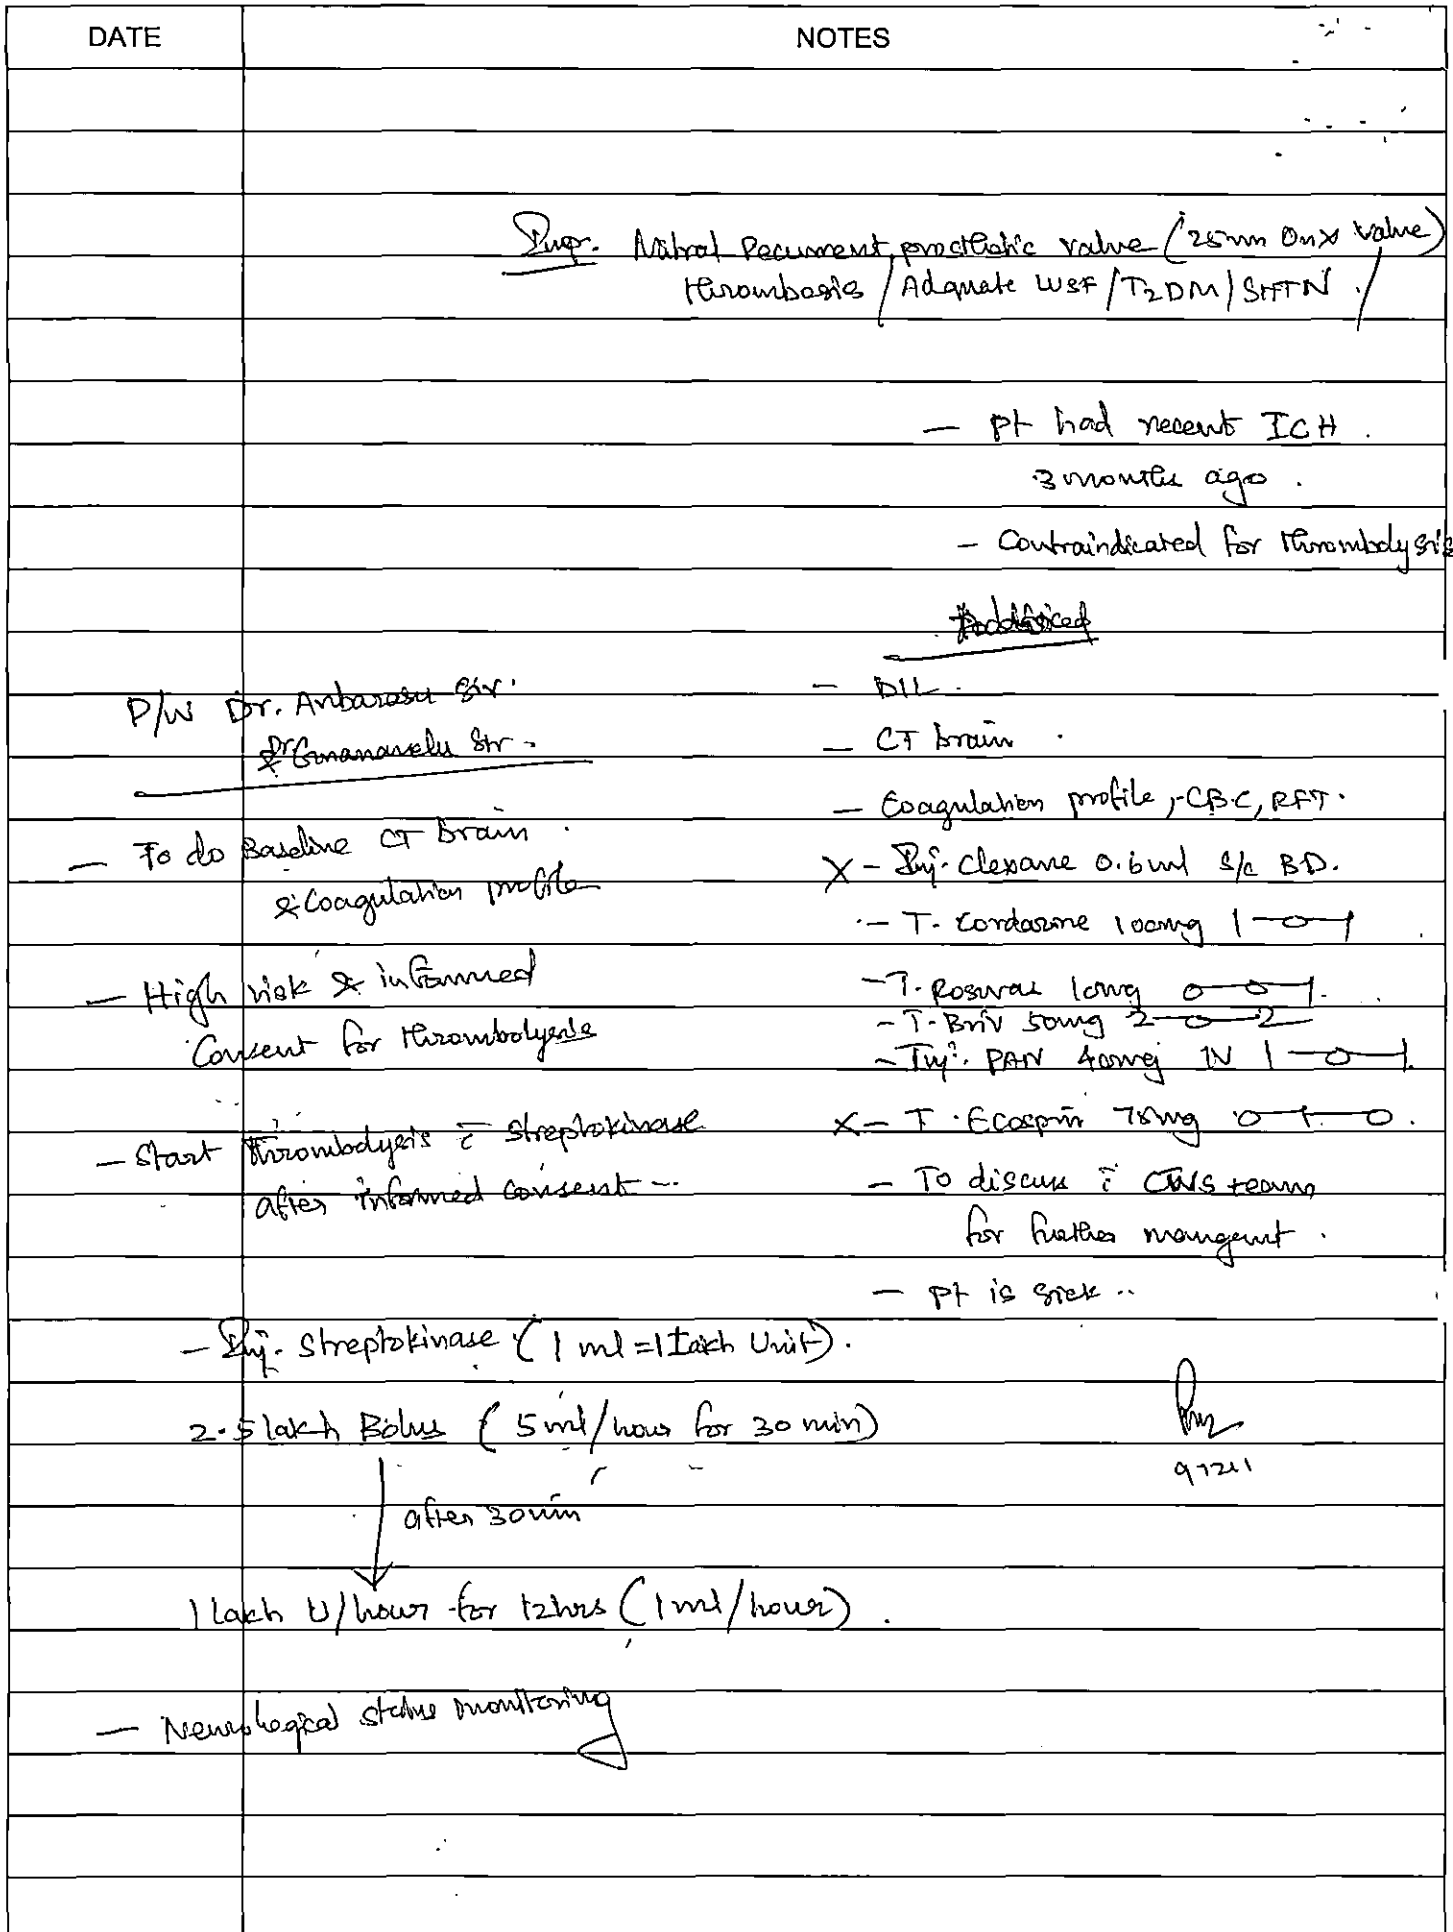 DATE NOTES
Imp. Mitral Recurrent prosthetic valve (25mm Onx valve)
thrombosis / Adquate LVSF / T2DM / SHTN /
- pt had recent ICH.
3 months ago.
- Contraindicated for thrombolysis
- DIL.
- CT brain.
- Coagulation profile, CBC, RFT.
X - Inj. Clexane 0.6ml s/c BD.
- T. Cordarone 100mg 1-0-1
- T. Rosuvas 10mg 0-0-1.
- T. Briv 50mg 2-0-2
- Inj. PAN 40mg IV 1-0-1.
X - T. Ecosprin 75mg 0-1-0.
- To discuss c̄ CTVS team
for further mangemt.
- pt is sick..
97211
D/W Dr. Anbarasu Sir.
& Dr Gnanavelu Sir.
- To do Baseline CT Brain.
& Coagulation profile
- High risk & informed
Consent for thrombolysis
- Start thrombolysis c̄ streptokinase
after informed consent..
- Inj. Streptokinase (1 ml = 1 lakh Unit).
2.5 lakh Bolus (5 ml/hour for 30 min)
after 30 min
1 lakh U/hour for 12hrs (1 ml/hour).
- Neurological status monitoring